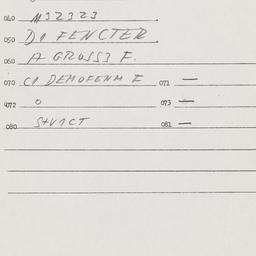 040 M32323
050 D1 FENCTER
060 A GROSS3 F.
070 C1 DEMOFENM E 071 —
472 0 073 —
080 S+V1CT 081 —